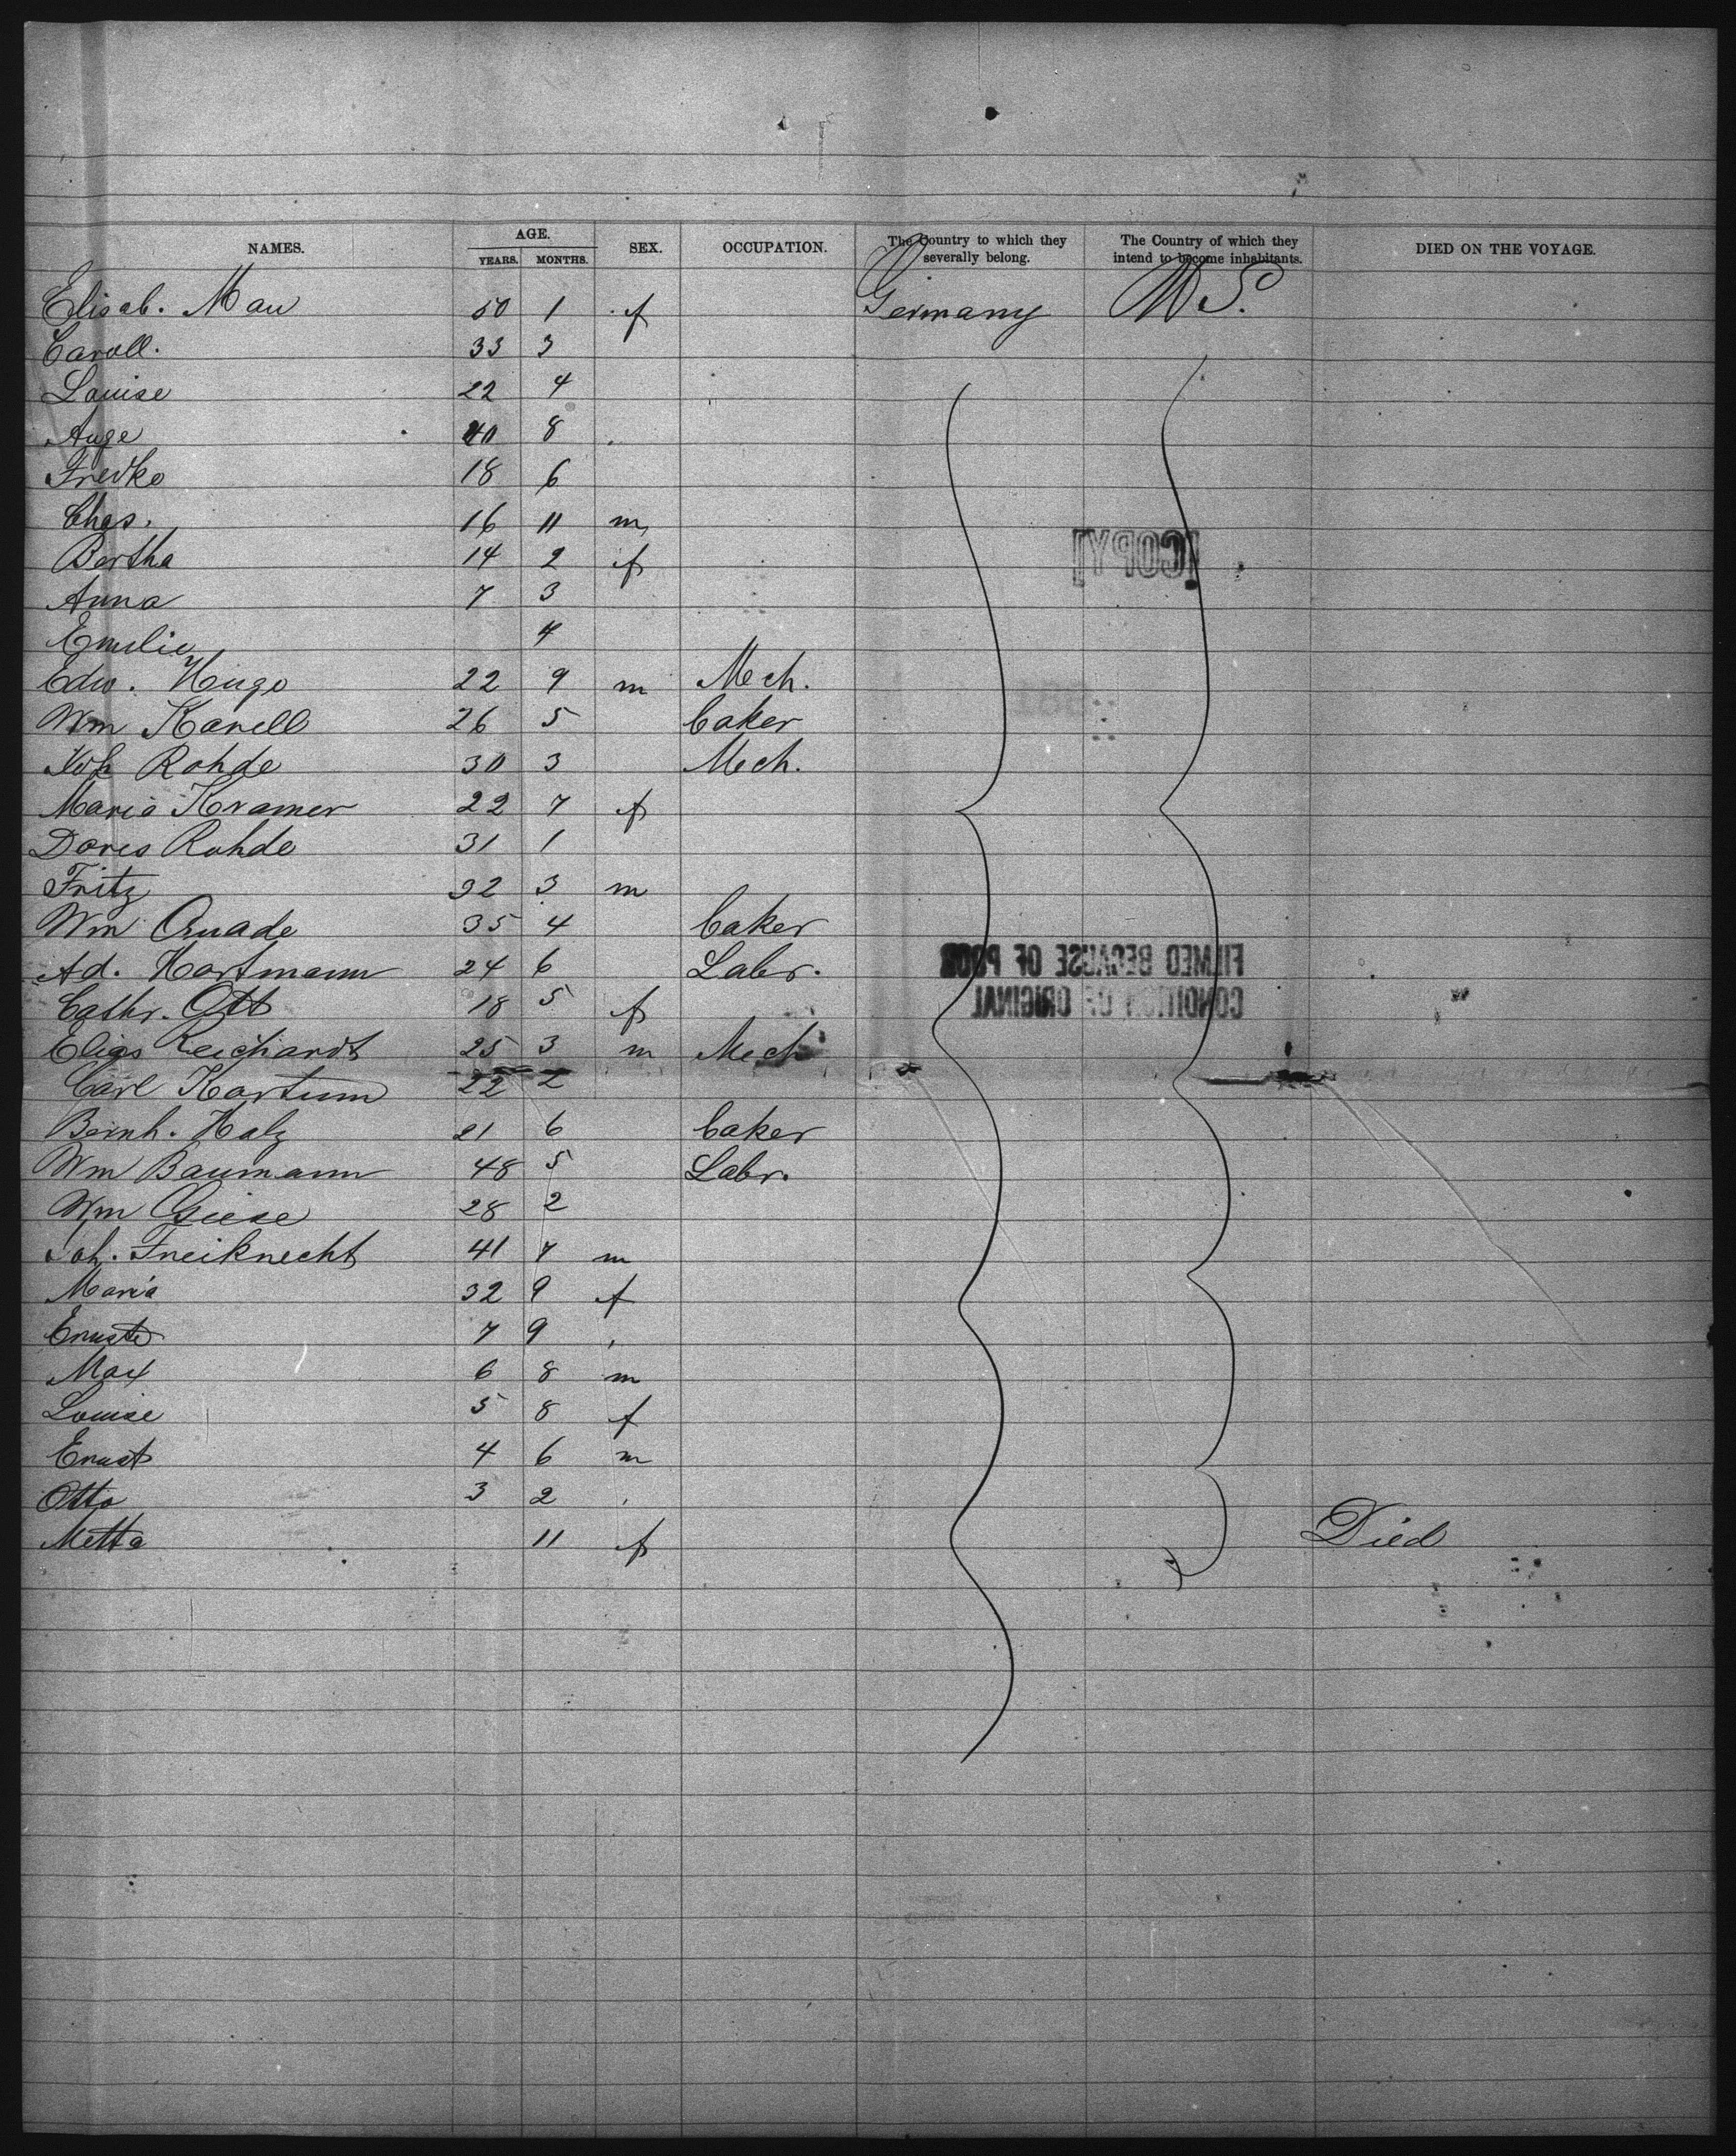 NAMES. AGE. YEARS. MONTHS. SEX. OCCUPATION. The Country to which they severally belong. The Country of which they intend to become inhabitants. DIED ON THE VOYAGE.
Elisab. Mau 50 1 f Germany U.S.
Caroll. 33 3
Louise 22 4
Auge 40 8
Fredke 18 6
Chas. 16 11 m
Bertha 14 2 f
[COPY]
Anna 7 3
Emilie 4
Edw. Hugo 22 9 m Mech.
Wm Karell 26 5 baker
Joh Rohde 30 3 Mech.
Maria Kramer 22 7 f
Dores Rohde 31 1
Fritz 32 3 m
Wm Quade 35 4 baker
Ad. Hartmann 24 6 Labr.
FILMED BECAUSE OF POOR
Cathr. Ott 18 5 f
CONDITION OF ORIGINAL
Elias Reichardt 25 3 m Mech
Carl Kortum 22 2
Bernh. Halz 21 6 baker
Wm Baumann 48 5 Labr.
Wm Giese 28 2
Joh. Freiknecht 41 7 m
Maria 32 9 f
Ernste 7 9
Max 6 8 m
Louise 5 8 f
Ernst 4 6 m
Otto 3 2
Metta 11 f Died